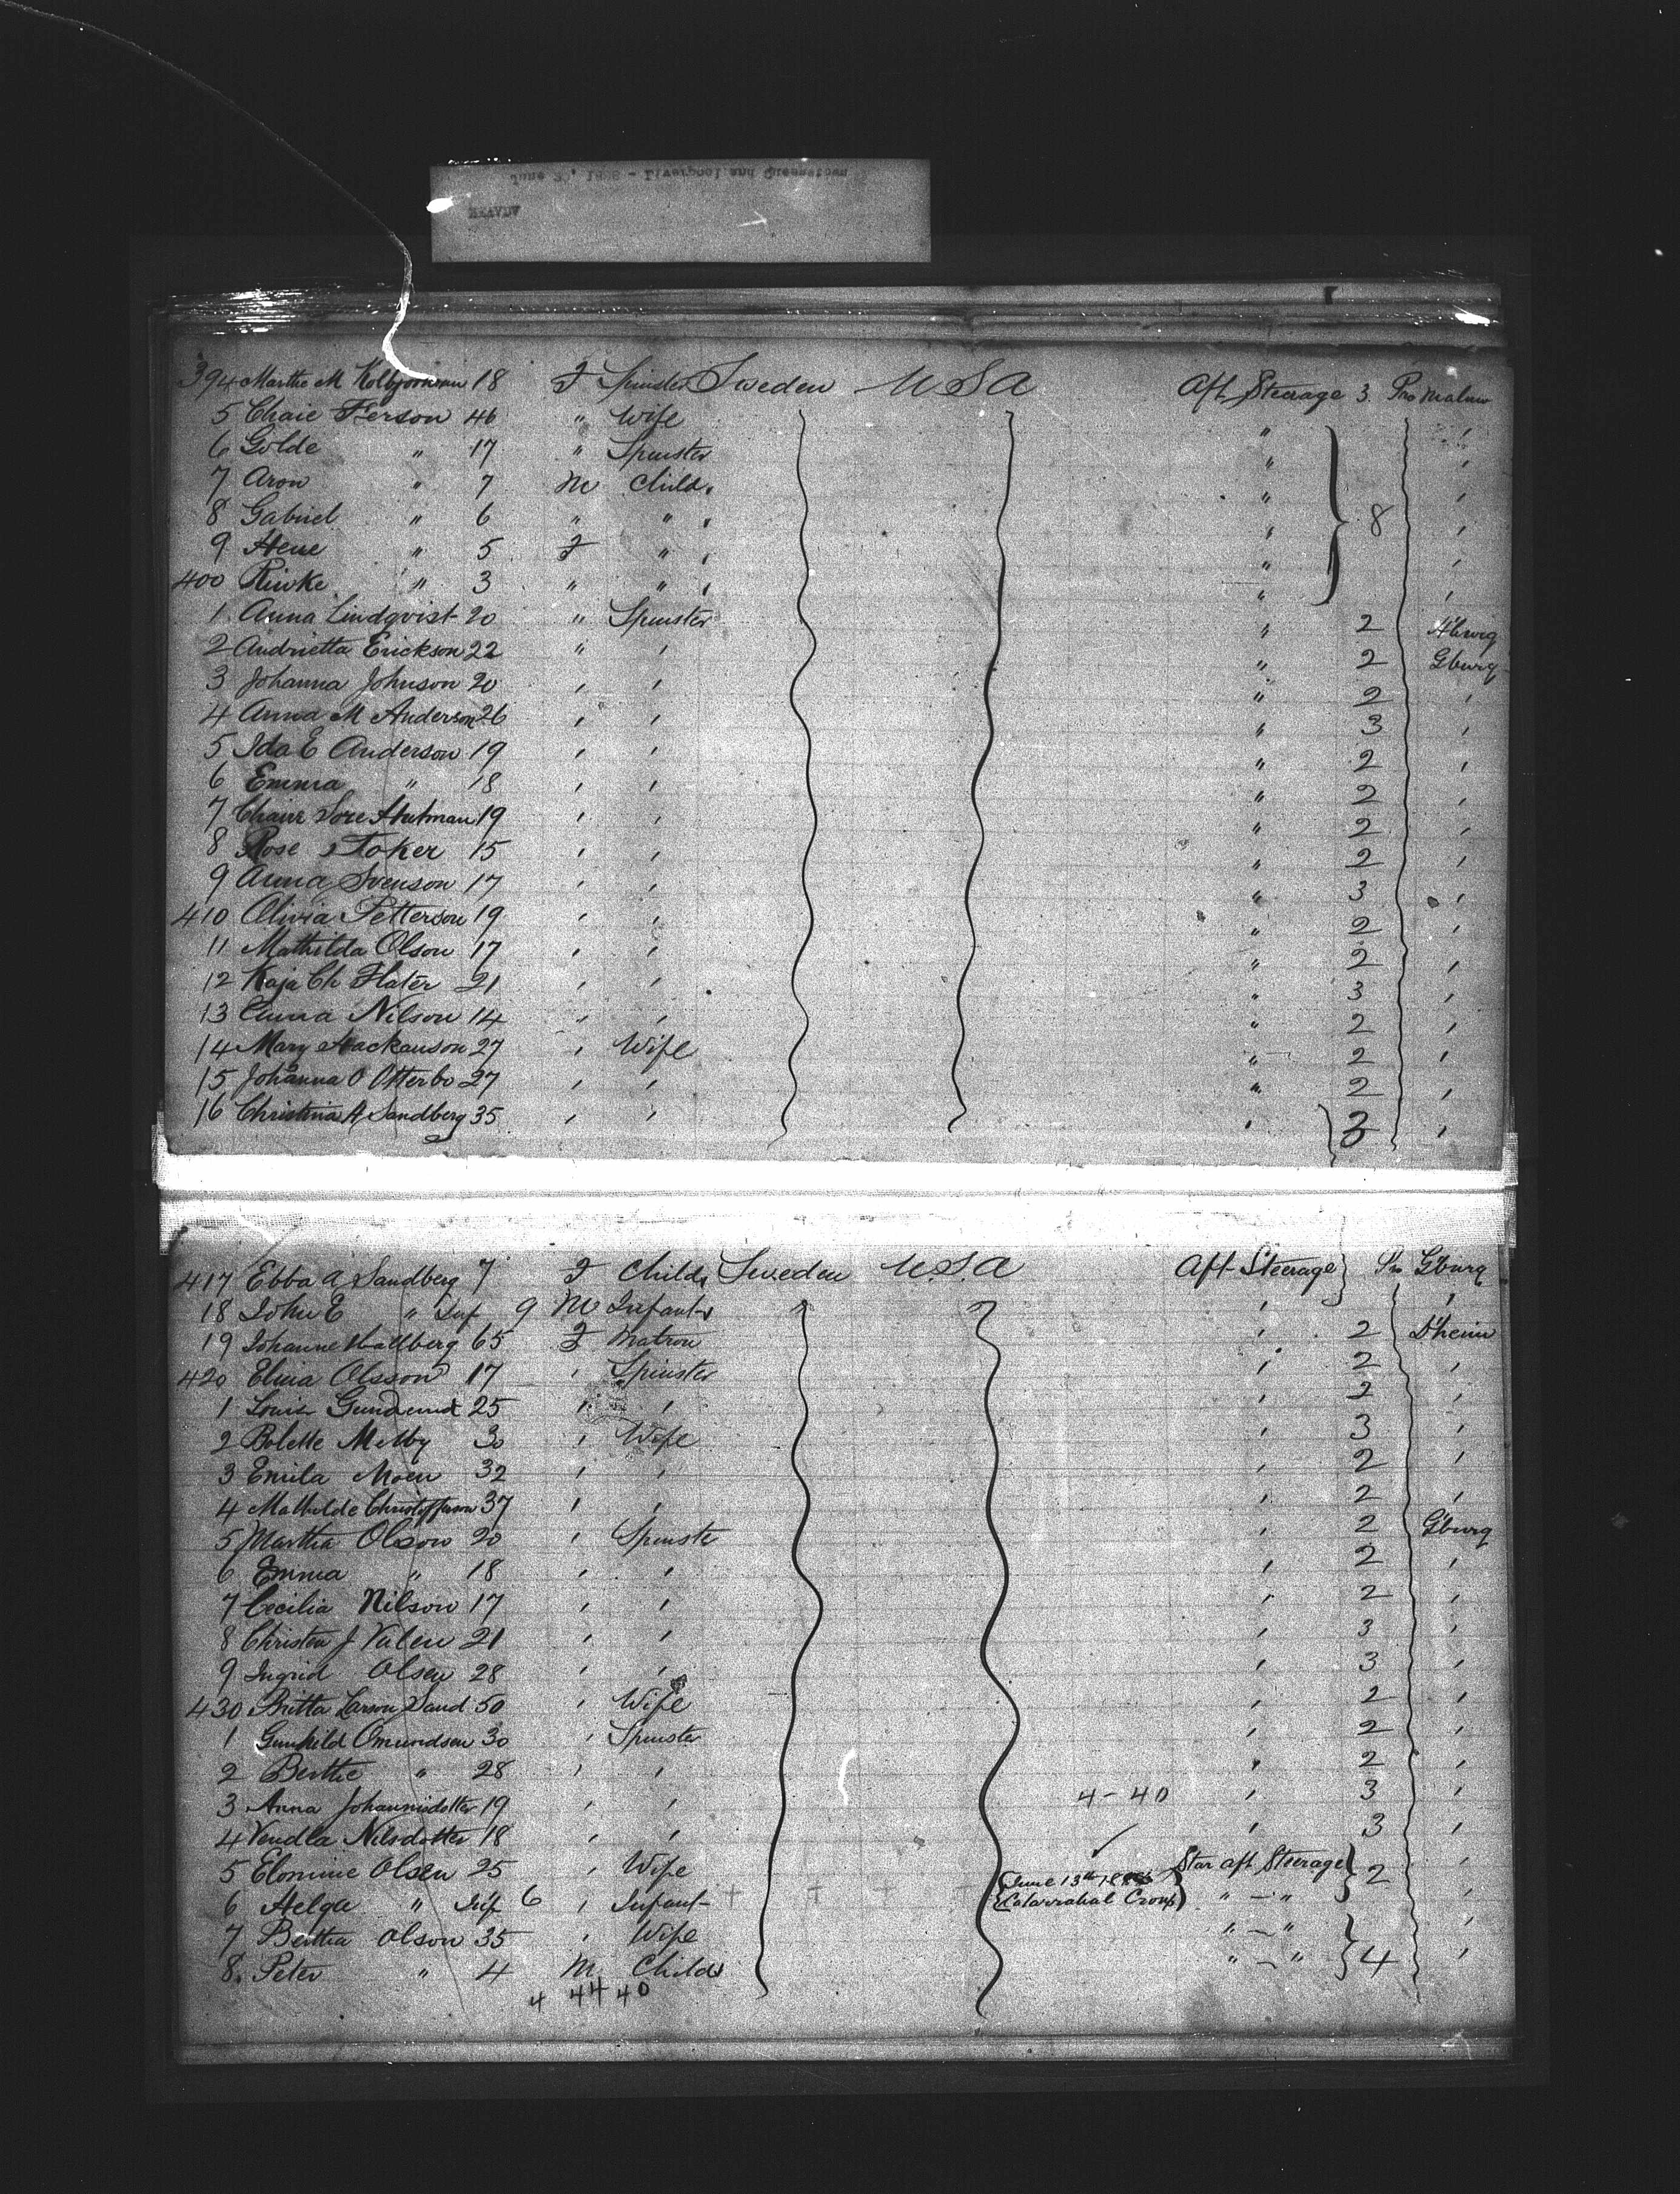 June 20, 1888 - Liverpool and Queenstown
394 Marthe M 18 F Spinster Sweden U S A Aft Steerage 3 Pro Malmo
5 Chaie Ferson 46 " Wife "
6 Golde " 17 " Spinster "
7 Aron " 7 M Child "
8 Gabriel " 6 " " " 8
9 Hene " 5 F " "
400 Riwke " 3 " " "
1 Anna Lindqvist 20 " Spinster " 2 Hburg
2 Andrietta Erickson 22 " " " 2 Gburg
3 Johanna Johnson 20 " " " 2 "
4 Anna M Anderson 26 " " " 3 "
5 Ida E Anderson 19 " " " 2 "
6 Emma " 18 " " " 2 "
7 Sore Hutman 19 " " " 2 "
8 Rose Toker 15 " " " 2 "
9 Anna Svenson 17 " " " 3 "
410 Olivia Petterson 19 " " " 2 "
11 Mathilda Olson 17 " " " 2 "
12 Kaja Ch Flater 21 " " " 3 "
13 Anna Nilson 14 " " " 2 "
14 Mary Hackanson 27 " Wife " 2 "
15 Johanna O Otterbo 27 " " " 2 "
16 Christina A Sandberg 35 " " " 3 "
417 Ebba A Sandberg 7 F Child Sweden U.S.A Aft Steerage Pro Gburg
18 John E " Inf 9 M Infant " "
19 Johanne Hallberg 65 F Matron " 2 D'heim
420 Elina Olsson 17 " Spinster " 2 "
1 25 " " " 2 "
2 Bolette Melby 30 " Wife " 3 "
3 Emila Moen 32 " " " 2 "
4 Mathilde Christofferson 37 " " " 2 "
5 Martha Olson 20 " Spinster " 2 Gburg
6 Emma " 18 " " " 2 "
7 Cecilia Nilson 17 " " " 2 "
8 Christen J Valen 21 " " " 3 "
9 Ingrid Olsen 28 " " " 3 "
430 Britta Larson Sand 50 " Wife " 2 "
1 Gunhild Omundsen 30 " Spinster " 2 "
2 Berthe " 28 " " " 2 "
3 Anna Johannisdotter 19 " " 4-40 " 3 "
4 Vendla Nilsdotter 18 " " " 3 "
5 Elomine Olsen 25 " Wife June 13th Star aft Steerage 2 "
6 Helga " Inf 6 " Infant Catarrahal Croup " - " "
7 Bertha Olson 35 " Wife " - " "
8 Peter " 4 M Child " - " 4 "
4 44 40